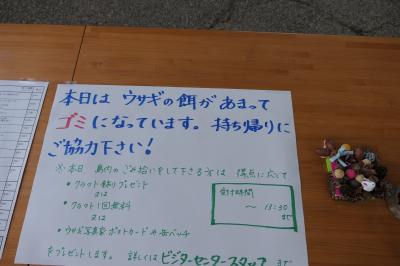 本日は ウサギの餌があまって
ゴミになっています。持ち帰りに
ご協力下さい!
※本日、島内のごみ拾いをして下さる方は、得点に応じて
・クラフト飾りプレゼント
又は
・クラフト1回無料
又は
・ウサギ写真家ポストカードや缶バッチ
をプレゼントします。詳しくはビジターセンタースタッフまで
受付時間
〜 13:30
まで